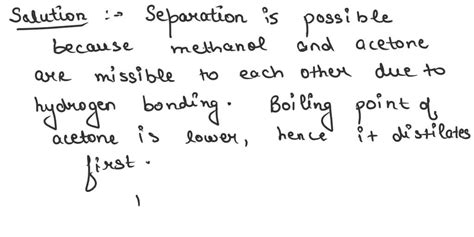 Solution :→ Separation is possible
because methanol and acetone
are missible to each other due to
hydrogen bonding. Boiling point of
acetone is lower, hence it distilates
first.